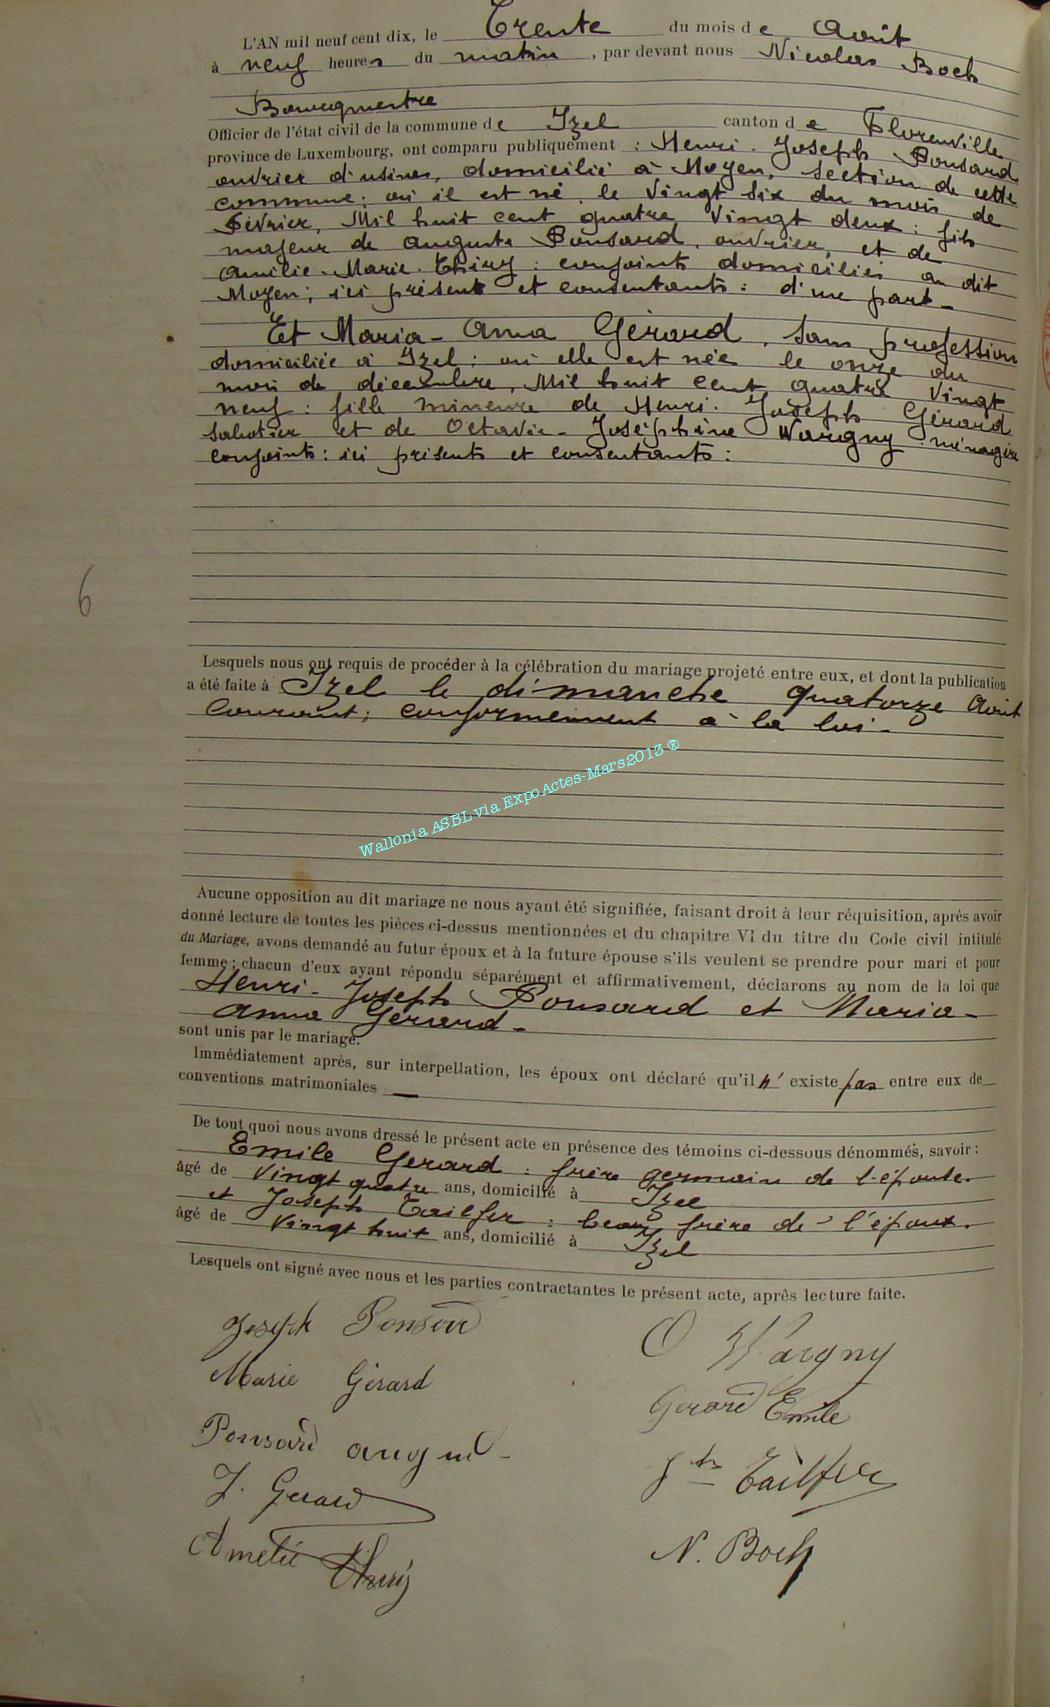 L'AN mil neuf cent dix, le Trente du mois de Août
à neuf heures du matin, par devant nous Nicolas Boch
Bourgmestre
Officier de l'état civil de la commune de Izel canton de Florenville
province de Luxembourg, ont comparu publiquement : Henri-Joseph Ponsard
ouvrier d'usines, domicilié à Moyen, section de cette
commune; où il est né, le vingt six du mois de
Février, Mil huit cent quatre vingt deux : fils
majeur de Auguste Ponsard, ouvrier, et de
Amélie-Marie Thiry : conjoints domiciliés au dit
Moyen; ici présents et consentants : d'une part-
Et Maria-Anna Gérard, sans profession
domiciliée à Izel; où elle est née le onze du
mois de décembre, Mil huit cent quatre vingt
neuf : fille mineure de Henri-Joseph Gérard
sabotier et de Octavie-Joséphine Wargny ménagère
conjoints : ici présents et consentants :
6
Lesquels nous ont requis de procéder à la célébration du mariage projeté entre eux, et dont la publication
a été faite à Izel le dimanche quatorze Août
Courant; conformément à la loi-
Wallonia ASBL via ExpoActes-Mars2013 ®
Aucune opposition au dit mariage ne nous ayant été signifiée, faisant droit à leur réquisition, après avoir
donné lecture de toutes les pièces ci-dessus mentionnées et du chapitre VI du titre du Code civil intitulé
du Mariage, avons demandé au futur époux et à la future épouse s'ils veulent se prendre pour mari et pour
femme; chacun d'eux ayant répondu séparément et affirmativement, déclarons au nom de la loi que
Henri-Joseph Ponsard et Maria-
Anna Gérard-
sont unis par le mariage.
Immédiatement après, sur interpellation, les époux ont déclaré qu'il n' existe pas entre eux de
conventions matrimoniales —
De tout quoi nous avons dressé le présent acte en présence des témoins ci-dessous dénommés, savoir :
Emile Gerard : frère germain de l'épouse.
âgé de Vingt quatre ans, domicilié à Izel
et Joseph Tailfer : beau frère de l'époux.
âgé de Vingt huit ans, domicilié à Izel
Lesquels ont signé avec nous et les parties contractantes le présent acte, après lecture faite.
Joseph Ponsard
O Wargny
Marie Gérard
Gerard Emile
Ponsard
Jh Tailfer
J. Gerard
Amelie Thiry
N. Boch